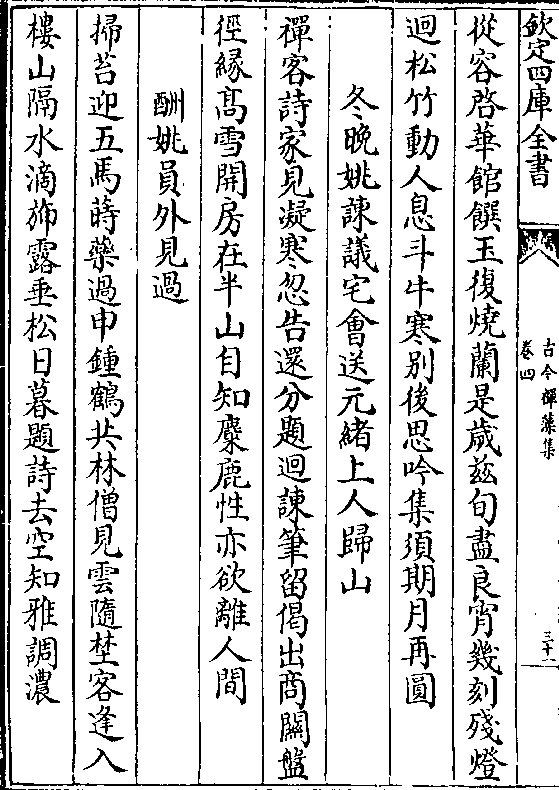 欽定四庫全書
古今禪藻集
卷四
三十一
從容啓華館饌玉復燒蘭是歲兹旬盡良宵幾刻殘燈
迴松竹動人息斗牛寒别後思吟集須期月再圓
冬晚姚諫議宅會送元緒上人歸山
禪客詩家見凝寒忽告還分題迴諫筆留偈出商關盤
徑緣髙雪開房在半山自知麋鹿性亦欲離人間
酬姚員外見過
掃苔迎五馬蒔藥過申鍾鶴共林僧見雲隨埜客逢入
樓山隔水滴斾露垂松日暮題詩去空知雅調濃